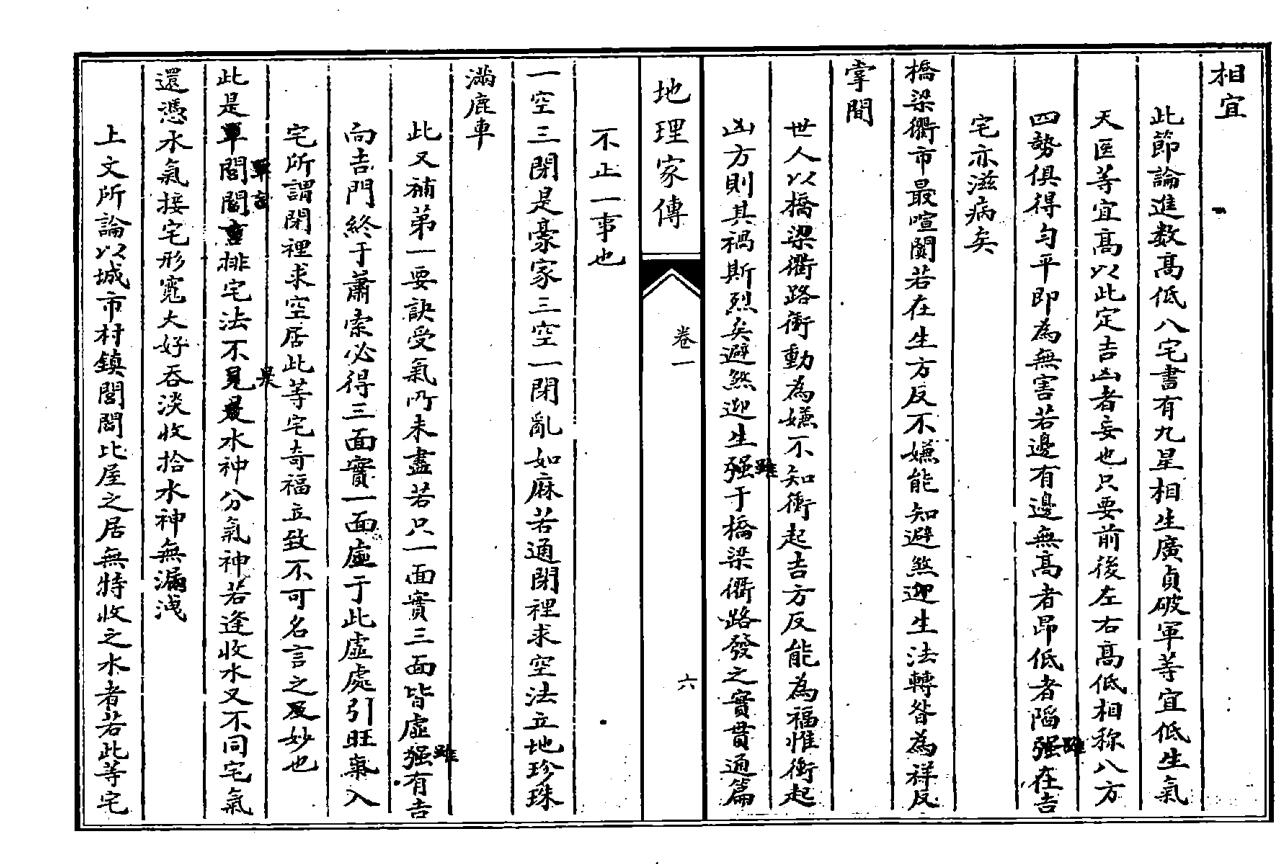 相宜
此節論進数高低八宅書有九星相生廣貞破軍等宜低生氣
天医等宜高以此定吉凶者妄也只要前後左右高低相称八方
四勢俱得匀平即為無害若邊有邊無高者昂低者陷强雖在吉
宅亦滋病矣
橋梁衢市最喧闐若在生方反不嫌能知避煞迎生法轉咎為祥反
掌間
世人以橋梁衢路衝動為嫌不知衝起吉方反能為福惟衝起
凶方則其禍斯烈矣避煞迎生强雖于橋梁衢路發之實貫通篇
地理家傳 卷一 六
不止一事也
一空三閉是豪家三空一閉亂如麻若通閉裡求空法立地珍珠
滿鹿車
此又補第一要訣受氣所未盡若只一面實三面皆虛强雖有吉
向吉門終于蕭索必得三面實一面虛于此虛處引旺氣入
宅所謂閉裡求空居此等宅奇福立致不可名言之及妙也
此是單閻閻重排宅法不見最水神分氣神若逢收水又不同宅氣
還憑水氣接宅形寬大好吞淡收拾水神無漏洩
上文所論以城市村鎮閭閻比屋之居無特收之水者若此等宅